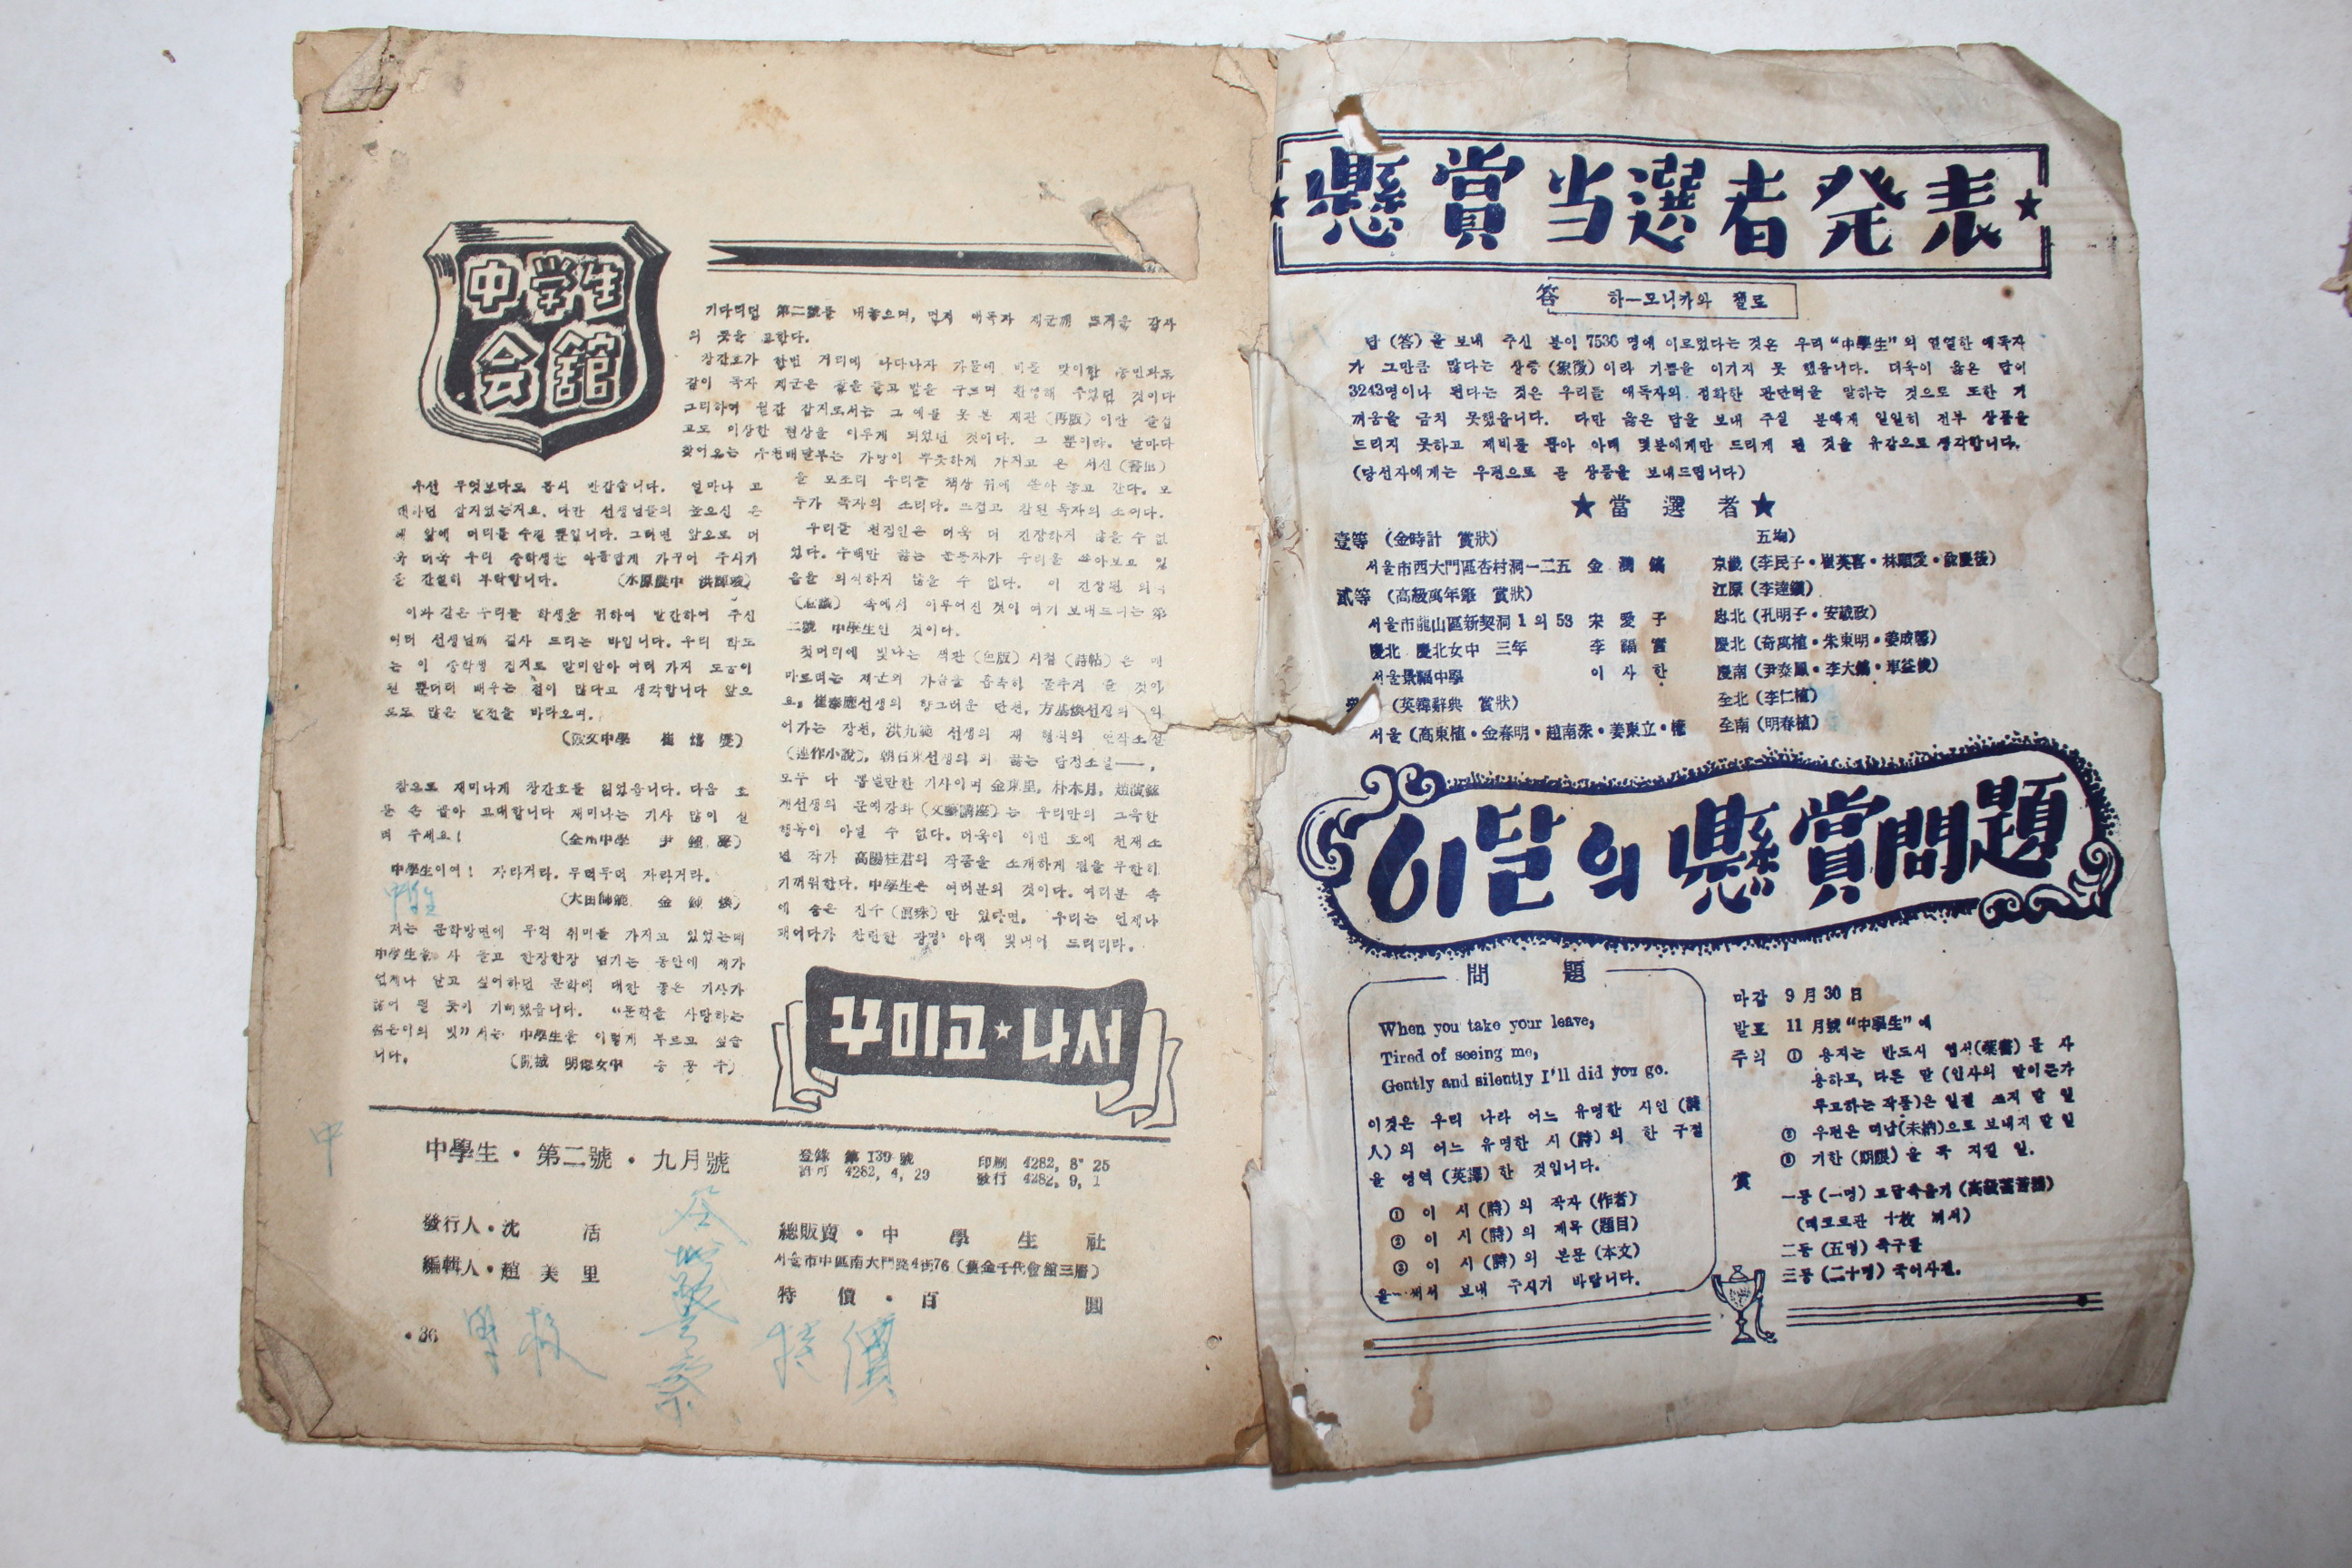 中学生
会館
기다리던 第二號를 내놓으며, 먼저 애독자 제군께 뜨거운 감사
의 뜻을 고한다.
창간호가 한번 거리에 나타나자 가뭄에 비를 맞이한 농민과도
같이 독자 제군은 손을 들고 발을 구르며 환영해 주었던 것이다
그리하여 월간 잡지로서는 그 예를 못 본 재판 (再版) 이란 즐겁
고도 이상한 현상을 이루게 되었던 것이다. 그 뿐이랴. 날마다
찾어오는 우편배달부는 가방이 뿌듯하게 가지고 온 서신 (書信)
을 모조리 우리들 책상 위에 쏟아 놓고 간다. 모
두가 독자의 소리다. 뜨겁고 참된 독자의 소이다.
우리들 편집인은 더욱 더 긴장하지 않을 수 없
었다. 수백만 끓는 눈동자가 우리를 쏘아보고 있
음을 의식하지 않을 수 없다. 이 긴장된 의식
(意識) 속에서 이루어진 것이 여기 보내드리는 第
二號 中學生인 것이다.
첫머리에 빛나는 색판 (色版) 시첩 (詩帖) 은 메
마르려는 제군의 가슴을 흠족히 풀추겨 줄 것이
요, 崔泰應선생의 향그러운 단편, 方基煥선생의 익
어가는 장편, 洪九範 선생의 재 형식의 연작소설
(連作小說), 朝石東선생의 피 끓는 탐정소설——,
모두 다 뽐낼만한 기사이며 金東里, 朴木月, 趙演鉉
세선생의 문예강좌 (文藝講座) 는 우리만의 그윽한
행복이 아닐 수 없다. 더욱이 이번 호에 천재소
년 작가 高陽柱君의 작품을 소개하게 됨을 무한히
기꺼워한다. 中學生은 여러분의 것이다. 여러분 속
에 숨은 진주 (眞珠) 만 있다면, 우리는 언제나
패어다가 찬란한 광명 아래 빛내여 드리리라.
꾸미고★나서
우선 무엇보다도 몹시 반갑습니다. 얼마나 고
대하던 잡지였는지요. 다만 선생님들의 높으신 은
혜 앞에 머리를 수긴 뿐입니다. 그러면 앞으로 더
욱 더욱 우리 중학생을 아름답게 가꾸어 주시기
을 간절히 부탁합니다. (水原農中 洪輝峻)
이와 같은 우리들 학생을 위하여 발간하여 주신
여러 선생님께 감사 드리는 바입니다. 우리 학도
는 이 중학생 잡지로 말미암아 여러 가지 도움이
된 뿐더러 배우는 점이 많다고 생각합니다 앞으
로도 많은 발전을 바라오며.
참으로 재미나게 창간호를 읽었읍니다. 다음 호
를 손 꼽아 고대합니다 재미나는 기사 많이 실
려 주세요!
中學生이여! 자라거라. 무럭무럭 자라거라.
(大田師範 金 鍾 煥)
저는 문학방면에 무척 취미를 가지고 있었는데
中學生을 사 들고 한장한장 넘기는 동안에 제가
언제나 알고 싶어하던 문학에 대한 좋은 기사가
끓어 뛸 듯이 기뻐했읍니다. “문학을 사랑하는
젊은이의 빗” 저는 中學生을 이렇게 부르고 싶습
니다.
中學生・第二號・九月號
登錄 第 139 號
許可 4282, 4, 29
印刷 4282, 8, 25
發行 4282, 9, 1
發行人・沈 活
編輯人・趙 美 里
總販賣・中 學 生 社
서울市中區南大門路4街76 (舊金千代會館三層)
特 價・百 圓
・36
特價
懸賞当選者発表★
答 하—모니카와 첼로
답 (答) 을 보내 주신 분이 7536 명에 이르렀다는 것은 우리 “中學生” 의 열열한 애독자
가 그만큼 많다는 상증 (象徵) 이라 기쁨을 이기지 못 했읍니다. 더욱이 옳은 답이
3243명이나 된다는 것은 우리들 애독자의 정확한 판단력을 말하는 것으로 또한 기
꺼움을 금치 못했읍니다. 다만 옳은 답을 보내 주실 분에게 일일히 전부 상품을
드리지 못하고 제비를 뽑아 아래 몇분에게만 드리게 된 것을 유감으로 생각합니다.
(당선자에게는 우편으로 곧 상품을 보내드립니다)
★當 選 者★
壹等 (金時計 賞狀)
서울市西大門區杏村洞一二五 金 潤 鎬
貳等 (高級萬年筆 賞狀)
서울市龍山區新契洞 1 의 53 宋 愛 子
慶北 慶北女中 三年 李 福 實
서울景福中學 이 사 한
(英韓辭典 賞狀)
서울 (高東植・金春明・趙南洙・姜東立・權
五均)
京畿 (李民子・崔英喜・林順愛・兪慶薇)
江原 (李達鎭)
忠北 (孔明子・安敏政)
慶北 (奇萬植・朱東明・姜成馨)
慶南 (尹泰鳳・李大鎬・車益俊)
全北 (李仁植)
全南 (明春植)
이달의 懸賞問題
問 題
When you take your leave,
Tired of seeing me,
Gently and silently I'll did you go.
이것은 우리 나라 어느 유명한 시인 (詩
人) 의 어느 유명한 시 (詩) 의 한 구절
을 영역 (英譯) 한 것입니다.
① 이 시 (詩) 의 작자 (作者)
② 이 시 (詩) 의 제목 (題目)
③ 이 시 (詩) 의 본문 (本文)
을 써서 보내 주시기 바랍니다.
마감 9 月 30 日
발표 11 月號 “中學生” 에
주의 ① 용지는 반드시 엽서(葉書) 를 사
용하고, 다른 말 (인사의 말이든가
투고하는 작품)은 일절 쓰지 말 일
② 우편은 미납(未納)으로 보내지 말 일
③ 기한 (期限) 을 꼭 지킬 일.
賞
一等 (一명) 고급축음기 (高級蓄音器)
(레코오판 十枚 껴서)
二등 (五명) 축구뽈
三등 (二十명) 국어사전.